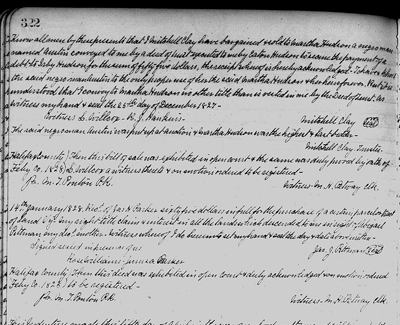 322
Know all men by these presents that I Mitchell Clay have bargained & sold to Martha Hudson a negro man
named Austin conveyed to me by a deed of trust executed to me by Eaton Hudson to secure the payment of a
debt to by Hudson for the sum of fifty five dollars, the receipt whereof is hereby acknowledged. To have & to hold
the said negro man Austin to the only proper use of her the said Martha Hudson when hereinforever. But it is
understood that I convey to Martha Hudson no other title than is vested in me by the Deed of trust. as
witness my hand & seal the 25th day of December 1827 -
Witness L. Willcox - B. J. Hawkins - Mitchell Clay seal
The said negro man Austin was put up at auction & Martha Hudson was the highest & last bidder -
Mitchell Clay Trustee
Halifax County } Then this bill of sale was exhibited in open court & the same was duly proved by oath of
Feby Co. 1828 } L. Willcox a witness thereto & on motion ordered to be registered -
Jn. M. T. Ponton P.R. Witness M. H. Petway Clk.
14th January 1828. Recd. of Zack Parker sixty five dollars in full for the purchase of a certain parcel or tract
of land of my right title claim & interest in all the lands which descended to me in right of Abigail
Pittman my decd. mother - witness whereof I do hereunto set my hand & seal the day & date above written -
Signed sealed in presence of us Jas. J. Pittman seal
Parker
Halifax County } Then this deed was exhibited in open court & duly acknowledged & on motion ordered
Feby Co. 1828 } to be registered -
Jn. M. T. Ponton P.R. Witness M. H. Petway Clk.